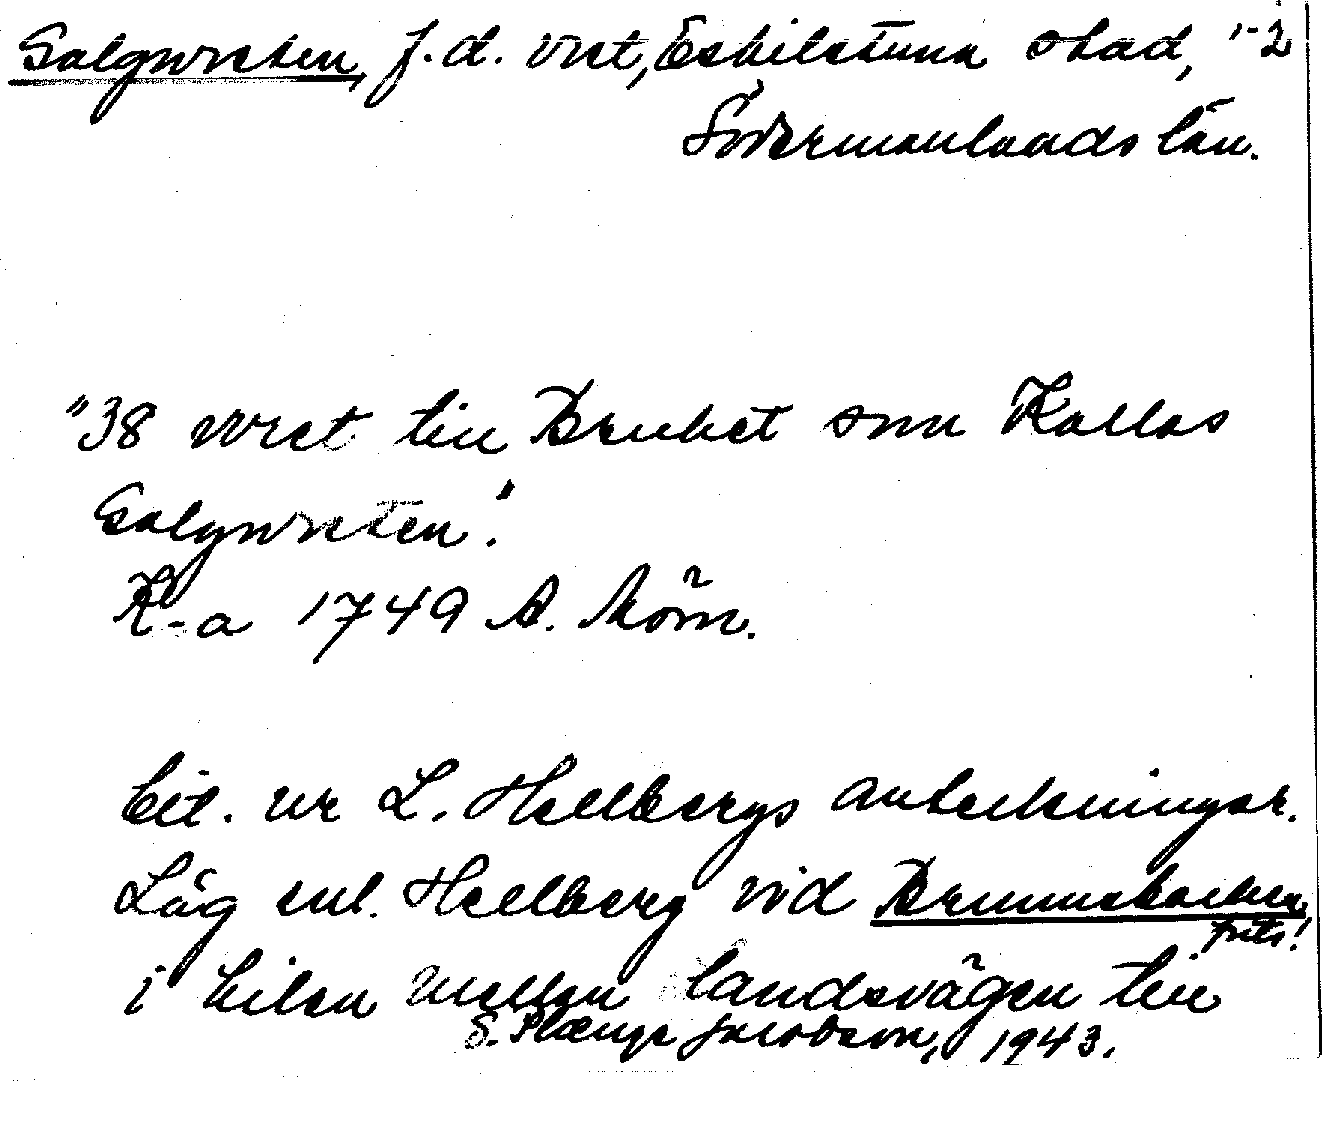 Galgwreten, f.d. vret, Eskilstuna stad, 1-2
Södermanlands län.
"38 wret till Bruket som Kallas
Galgwreten."
K-a 1749 A. Mörn.
Cit. ur L. Hellbergs anteckningar.
Låg enl. Hellberg vid Brunnsbacken,
forts!
i kilen mellan landsvägen till
S. Plænge Jacobson, 1943.